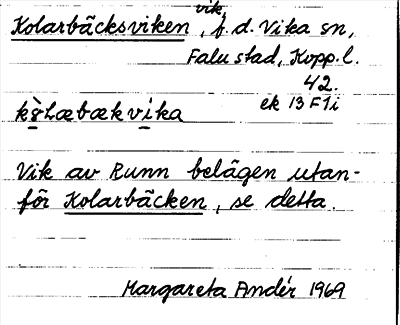 Kolarbäcksviken, vik, f.d. Vika sn,
Falu stad, Kopp.l.
42.
ek 13 F1i
kòLæbækvika
Vik av Runn belägen utan-
för Kolarbäcken, se detta.
Margareta Andér 1969